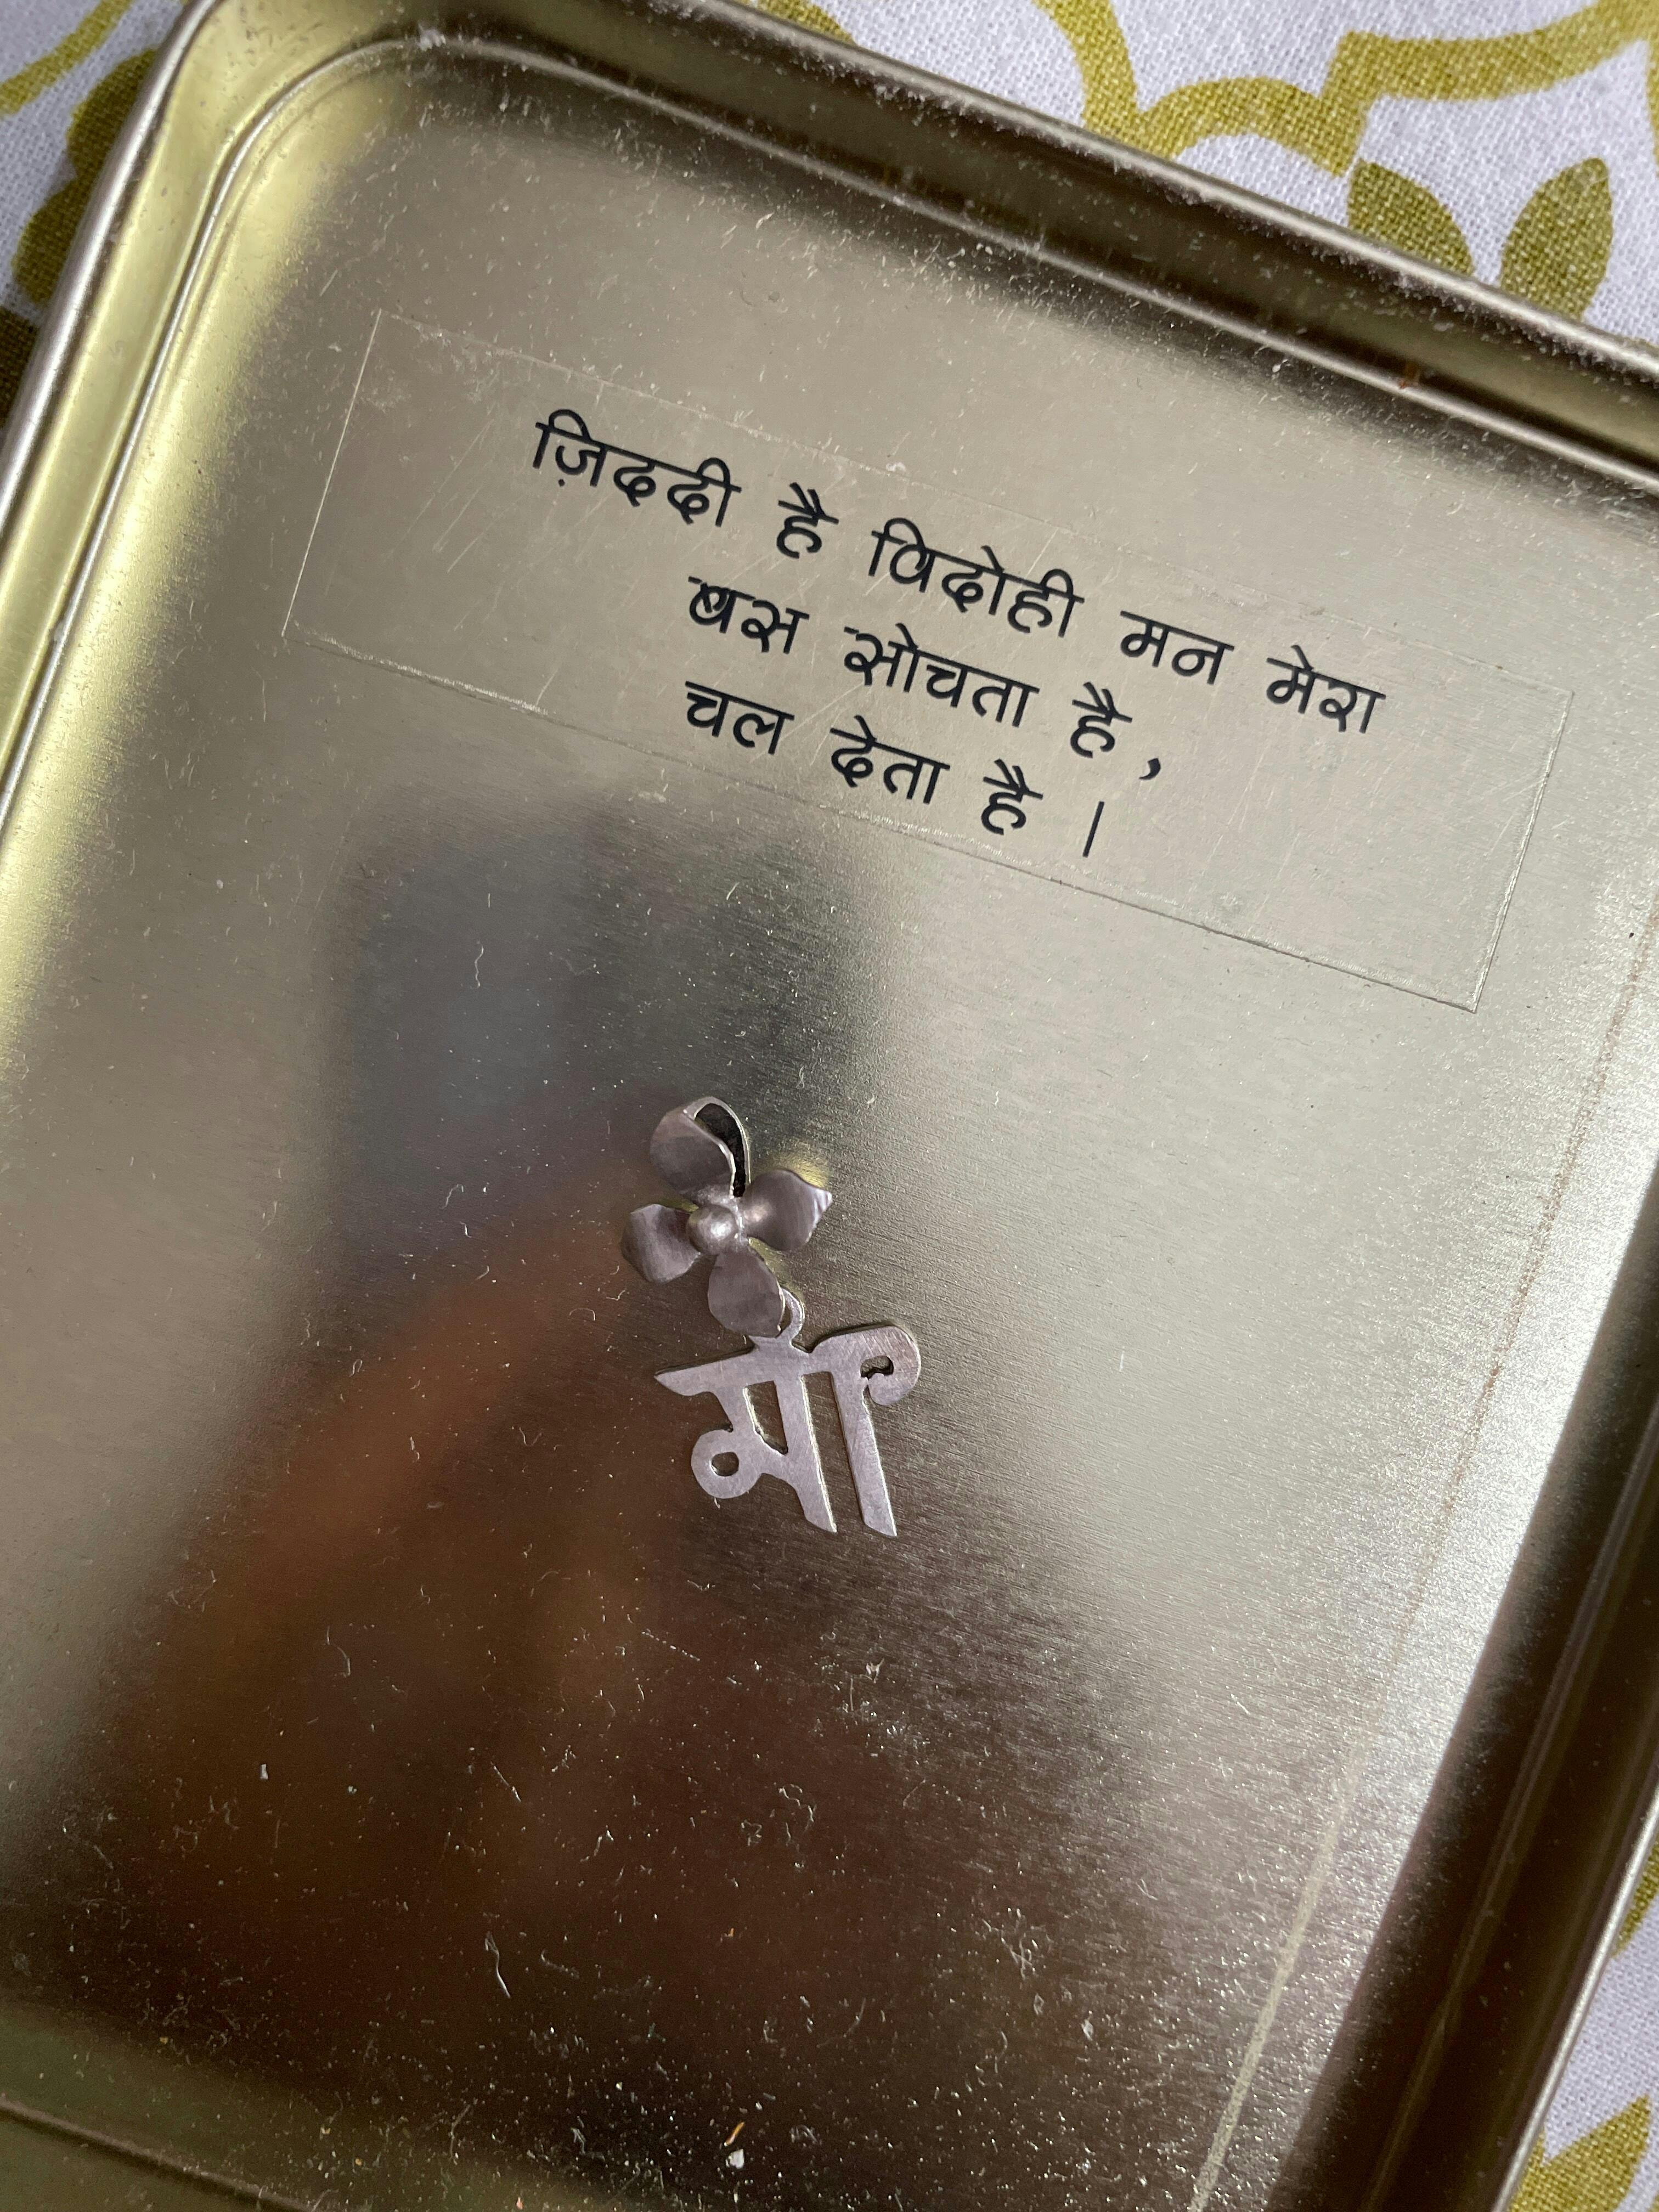 ज़िददी है विदोही मन मेरा
बस सोचता है ,
चल देता है ।